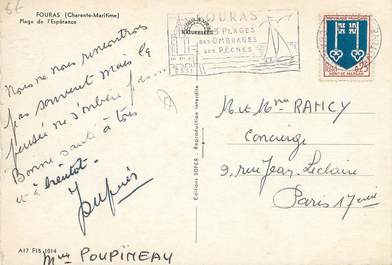 FOURAS (Charente-Maritime)
Plage de l'Espérance
FOURAS
SES PLAGES
SES OMBRAGES
SES PÊCHES
Nous ne nous rencontrons
pas souvent mais la
pensée ne s'envole pas...
Bonne santé à tous
et à bientôt.
Dupuis
Melle POUPINEAU
A17 F15 1014
Editions SOFER - Reproduction interdite
REPUBLIQUE FRANCAISE
0,25
MONT-DE-MARSAN
M et Mme RANCY
Concierge
9, rue Jean Leclaire
Paris 17ème